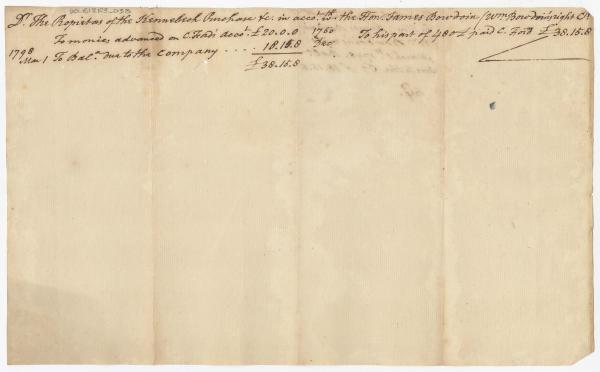 Dr. The Propietas of the Kennebeck Purchase &c. in acco.t with the Hon. James Bowdoin (Wm Bowdoin's right Cr
To monies advanced on C. Fords acco.t £20.0.0 1760 To his part of 480£ paid C. Ford £38.15.8
1798 18.15.8 Dec
Mar 1 To Bal.ce due to the Company . . . .
£38.15.8